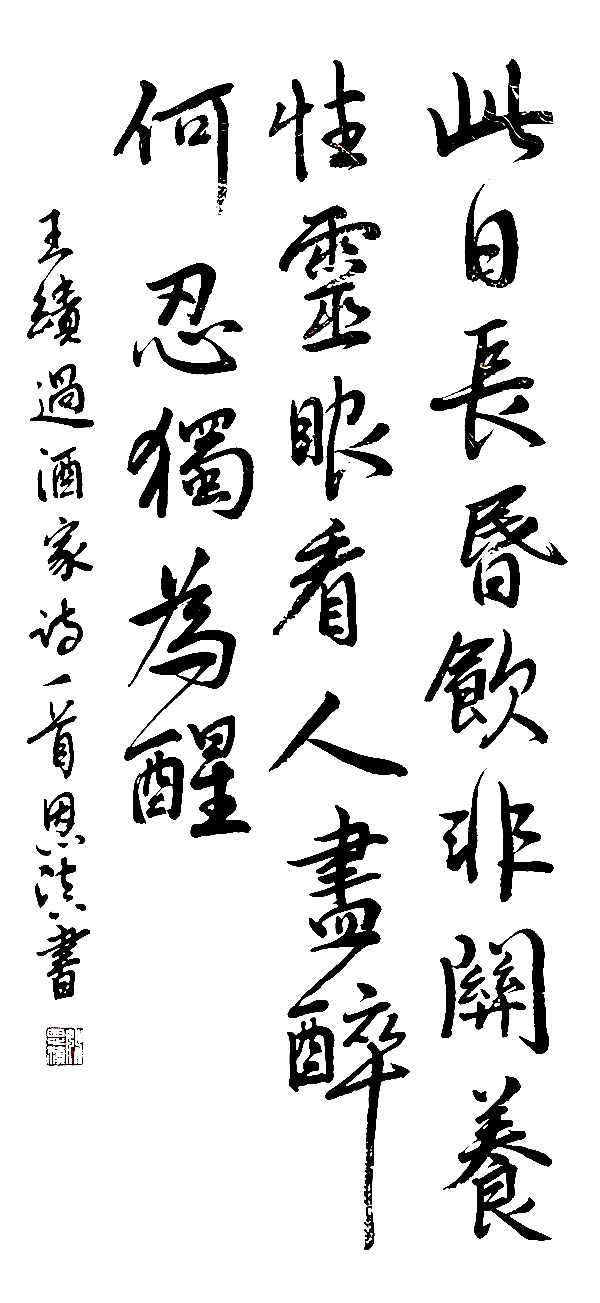 此日長昏飲非關養
性靈眼看人盡醉
何忍獨為醒
王績過酒家詩一首恩滨書